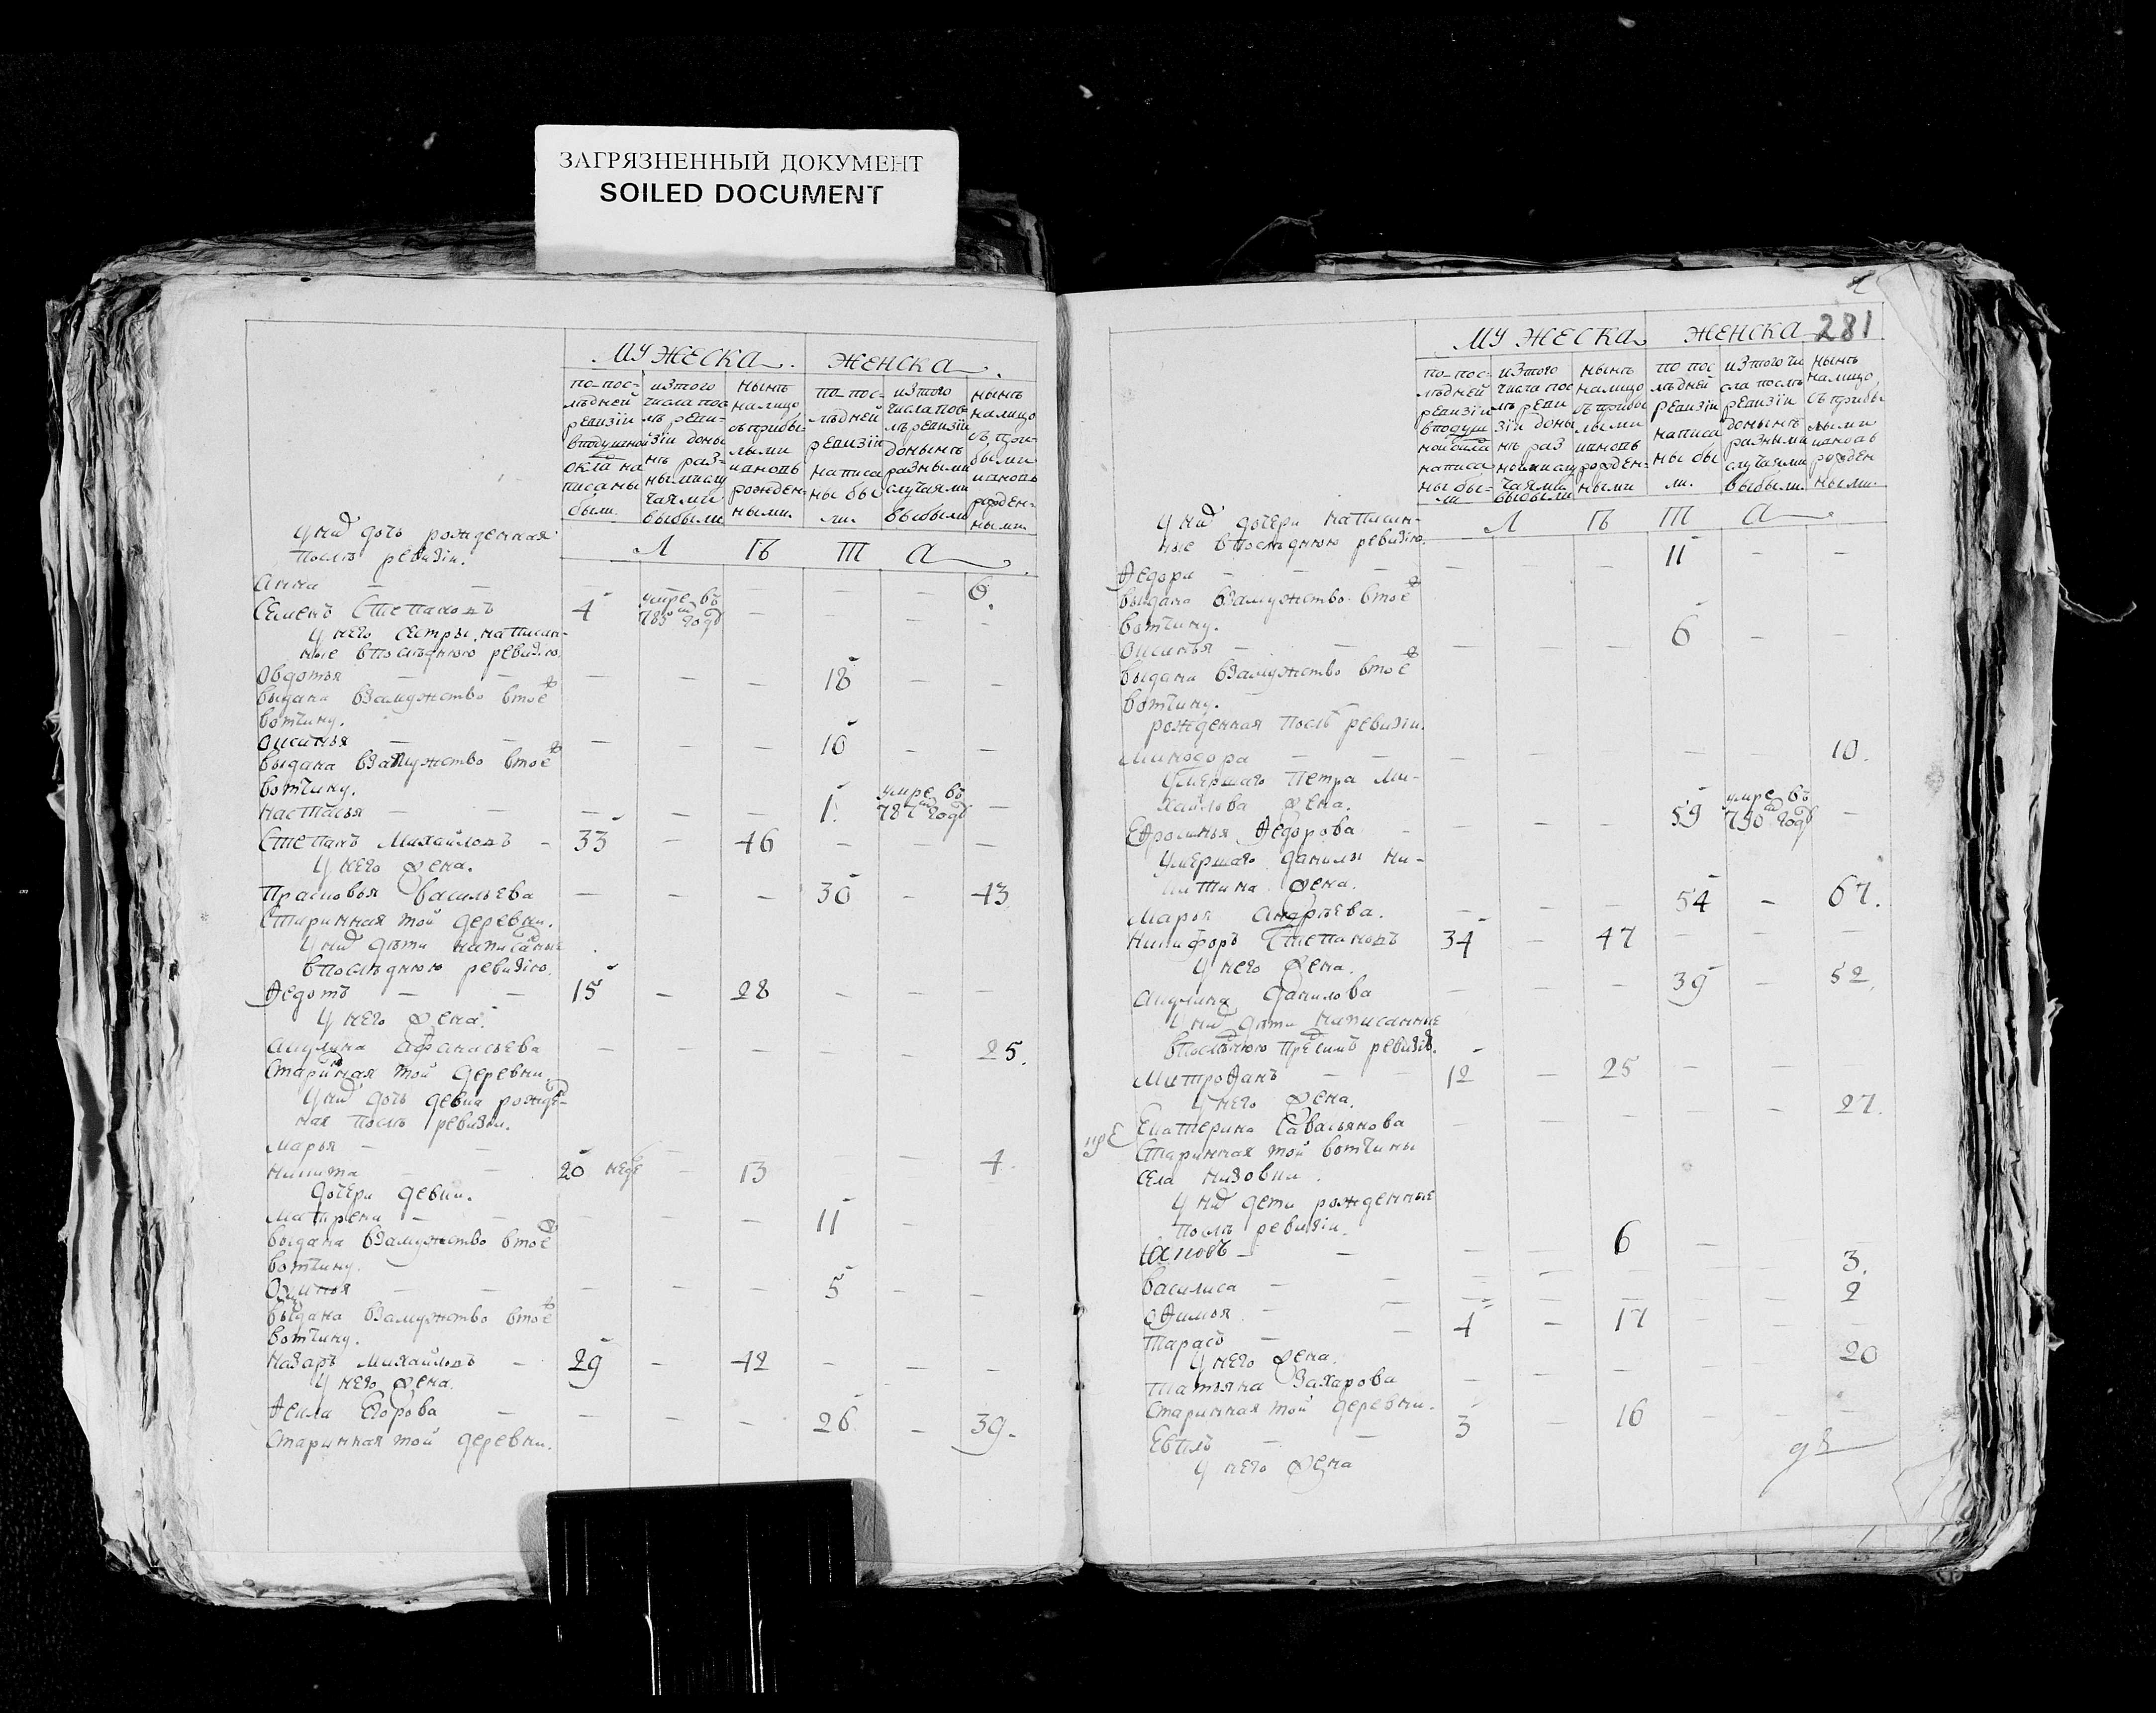 ЗАГРЯЗНЕННЫЙ ДОКУМЕНТ
SOILED DOCUMENT
МУЖЕСКА. ЖЕНСКА.
по пос-
лѣдней
ревизіи
в подушной
окла на
писаны
были.
из того
числа пос
лѣ реви-
зіи доны
нѣ раз-
ными слу
чаями
выбыли
нынѣ
налицо
съ прибы-
лыми
и вновь
рожден-
ными.
по пос-
лѣдней
ревизіи
написа
ны бы
ли.
из того
числа пос
лѣ ревизіи
до нынѣ
разными
случаями
выбыли
нынѣ
налицо
съ при-
былыми
и вновь
рожден-
ными.
У ниⷯ дочь рожденная
послѣ ревизіи.
Л Ѣ Т А
Анна — — — — — — — 6.
Семенъ Степановъ 4 умре въ 783ᵐ годꙋ — — — —
У него сестры написан-
ные в последнюю ревизію
Овдотья — — — — — 18 — —
выдана в замужство в тоеⷤ
вотчину.
Оксинья — — — — — 16 — —
выдана в замужство в тоеⷤ
вотчину.
Настасья — — — — 1. умре въ 787ᵐ годꙋ —
Степанъ Михайловъ — 33 — 46 — — —
У него жена.
Прасковья Васильева — — — 30 — 43
Старинная той деревни.
У ниⷯ дѣти написаные
в последнюю ревизію.
Ѳедотъ — — 15 — 28 — — —
У него жена.
Акулина Афанасьева — — — — — 25.
Старинная той деревни
У ниⷯ дочь девка рожде-
ная послѣ ревизіи.
Марья — — — — 4.
Никита — — 20 недѣ — 13
Дочери девки.
Матрена — — — — 11 —
выдана в замужство в тоеⷤ
вотчину.
Оксинья — — — — — 5 — —
выдана в замужство в тоеⷤ
вотчину.
Назаръ Михайловъ — 29 — 42 — — —
У него жена.
Ѳекла Егорова — — — — 26 — 39.
Старинная той деревни.
281
МУЖЕСКА ЖЕНСКА
по пос-
лѣдней
ревизіи
в подуш
ной окла
написа
ны бы-
ли
из того
числа пос
лѣ реви
зіи доны
нѣ раз
ными слу
чаями
выбыли
нынѣ
налицо
съ прибы
лыми
и вновь
рожден-
ными
по пос
лѣдней
ревизіи
написа
ны бы
ли.
из того чи
сла послѣ
ревизіи
до нынѣ
разными
случаями
выбыли.
нынѣ
налицо
съ прибы
лыми
и вновь
рожден
ными.
Л Ѣ Т А
У ниⷯ дочери написан-
ные в последнюю ревизію.
Ѳедора — — — — — — 11 — —
выдана в замужство в тоеⷤ
вотчину.
Оксинья — — — — — 6 — —
выдана в замужство в тоеⷤ
вотчину.
рожденная послѣ ревизіи.
Минодора — — — — — — — 10.
Умершаго Петра Ми-
хайлова жена.
Ефросинья Ѳедорова — — — — 59 умре въ 790ᵐ годꙋ —
Умершаго Данилы Ни-
китина жена.
Марья Андрѣева. — — — 54 — 67.
Никифоръ Степановъ 34 — 47 — — —
У него жена.
Акулина Данилова — — — 39 — 52.
У ниⷯ дѣти написанные
Митрофанъ — — 12 — 25 — — —
У него жена.
Екатерина Савельянова — — — — — 27.
Старинная той вотчины
села Низовки.
У ниⷯ дети рожденные
послѣ ревизіи.
Яковъ — — — — 6 — — —
Василиса — — — — — — — 3.
Офимья — — — — — — — 2
Тарасъ — — 4 — 17 — — —
У него жена.
Татьяна Захарова — — — — — 20
Старинная той деревни.
Евплъ — — 3 — 16 — — —
У него жена